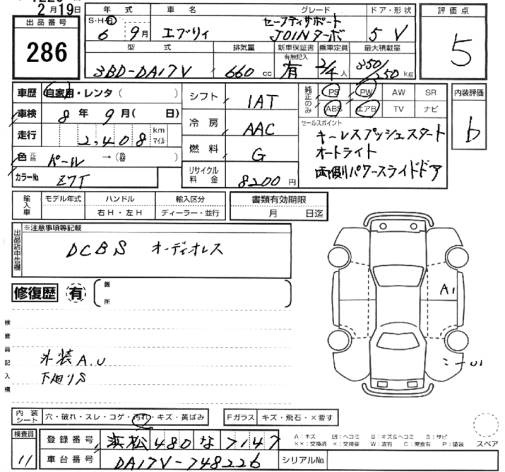 2月19日
出品番号
286
年式 車名 グレード ドア・形状
6年 9月 エブリィ セーフティサポート
JOINターボ 5 V
型式 排気量 新車保証書 乗車定員 最大積載量
有無記入
3BD-DA17V 660cc 有 2/4人 350/250kg
評価点
5
車歴 自家用・レンタ
車検 8年 9月( 日)
走行 2,408 km マイル
色 パール →
カラーNo Z7T
シフト 1AT
冷房 AAC
燃料 G
リサイクル料金 8200円
純正のみ PS PW AW SR
ABS エアB TV ナビ
セールスポイント
キーレスプッシュスタート
オートライト
両側パワースライドドア
内装評価
b
輸入車 モデル年式 ハンドル 輸入区分
年 右H・左H ディーラー・並行
書類有効期限
月 日迄
※注意事項等記載
DCBS オーディオレス
修復歴 有
箇所
検査員記入欄
外装A.U
下廻りS
A1
内装シート 穴・破れ・スレ・コゲ・汚れ・キズ・黄ばみ
Fガラス キズ・飛石・×要す
検査員
11
登録番号 浜松480な7147
車台番号 DA17V-748226
シリアルNo
スペア